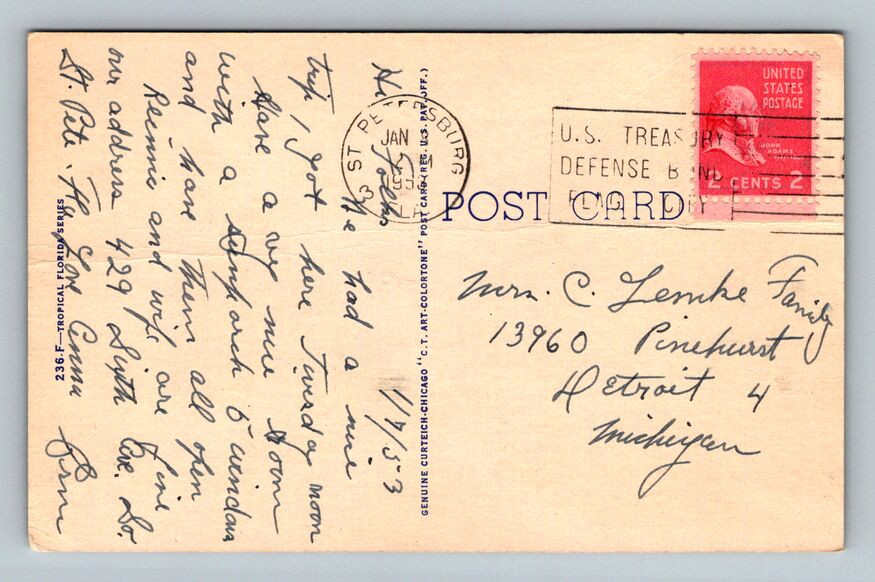 1/7/53
Hi Folks
We had a nice
trip, got here Tuesday noon
Have a very nice room
with a sunporch 5 windows
and have them all open
Rennie and wife are fine
our address 429 Sixth Ave. So.
St. Pete. Fla Love Emma
236-F—TROPICAL FLORIDA SERIES
GENUINE CURTEICH-CHICAGO "C.T. ART-COLORTONE" POST CARD (REG. U.S. PAT. OFF.)
POST CARD
ST PETERSBURG
JAN
3
U.S. TREASURY
DEFENSE BOND
FLAG CITY
UNITED
STATES
POSTAGE
JOHN
ADAMS
2 CENTS 2
Mrs. C. Lemke Family
13960 Pinehurst
Detroit 4
Michigan